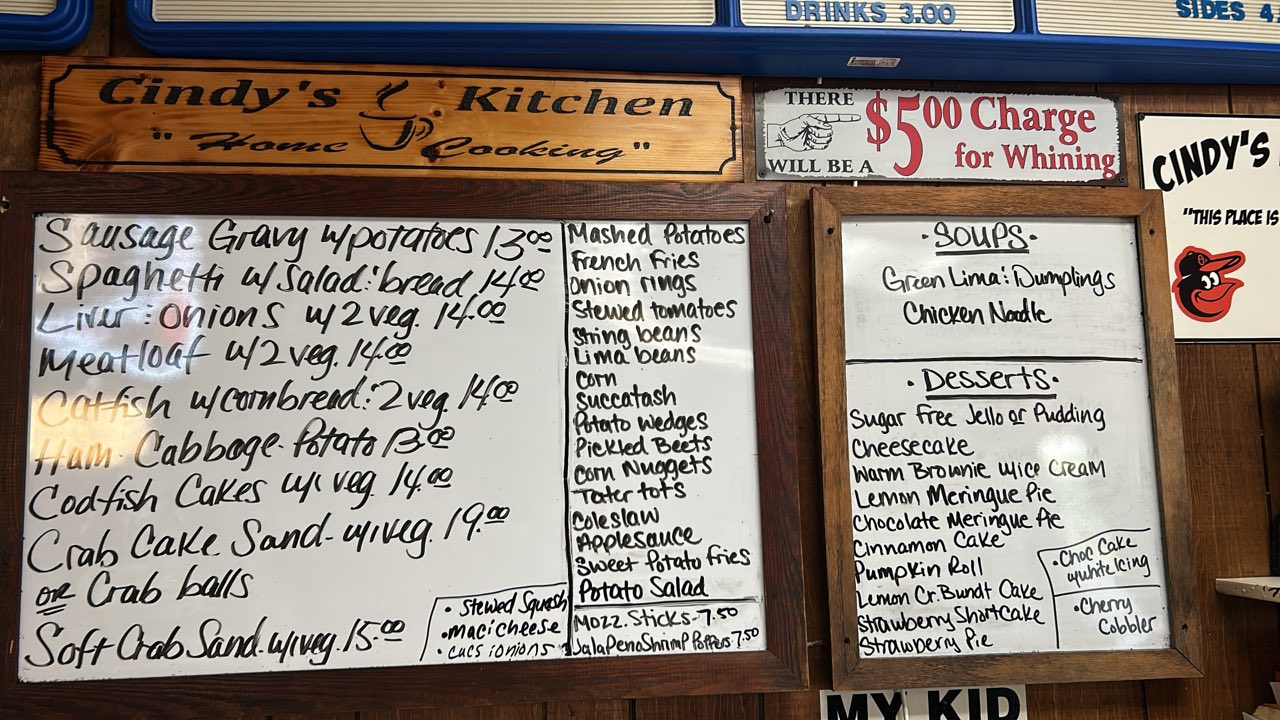 DRINKS 3.00
SIDES 4.
Cindy's Kitchen
"Home Cooking"
THERE WILL BE A
$5.00 Charge
for Whining
CINDY'S
"THIS PLACE IS
Sausage Gravy w/potatoes 13.00
Spaghetti w/salad : bread 14.00
Liver : Onions w/2 veg. 14.00
Meatloaf w/2 veg. 14.00
Catfish w/cornbread : 2 veg. 14.00
Ham - Cabbage - Potato 13.00
Codfish Cakes w/1 veg. 14.00
Crab Cake Sand. w/1 veg. 19.00
or Crab balls
Soft Crab Sand. w/1 veg. 15.00
• Stewed Squash
• mac : cheese
• cucs : onions
Mashed Potatoes
French Fries
Onion rings
Stewed tomatoes
String beans
Lima beans
Corn
Succatash
Potato wedges
Pickled Beets
Corn Nuggets
Tater tots
Coleslaw
Applesauce
Sweet Potato Fries
Potato Salad
Mozz. Sticks - 7.50
Jalapeno Shrimp Poppers 7.50
• Soups •
Green Lima : Dumplings
Chicken Noodle
• Desserts •
Sugar Free Jello or Pudding
Cheesecake
Warm Brownie w/ice cream
Lemon Meringue Pie
Chocolate Meringue Pie
Cinnamon Cake
Pumpkin Roll
Lemon Cr. Bundt Cake
Strawberry Shortcake
Strawberry Pie
• Choc Cake
w/white Icing
• Cherry
Cobbler
MY KID